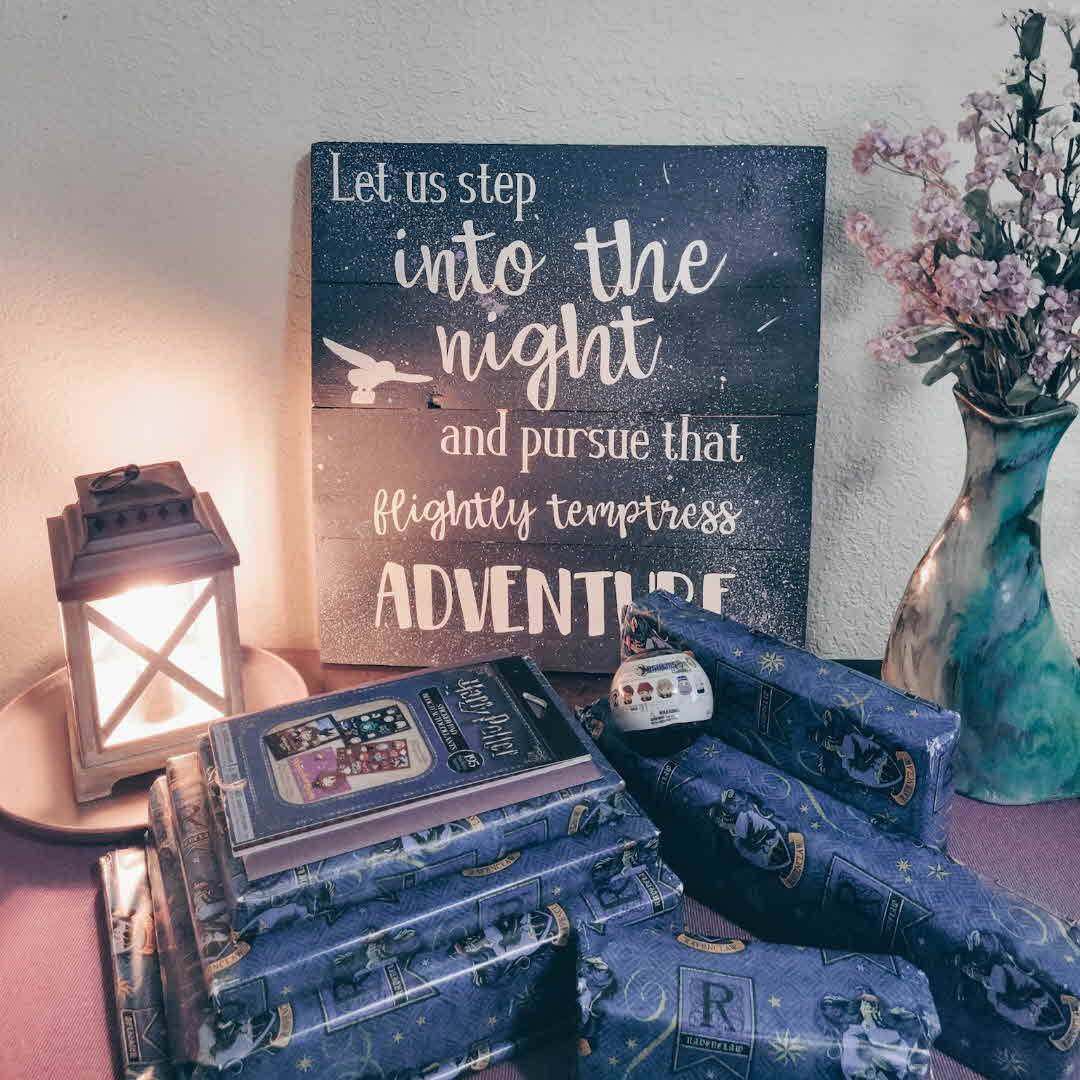 Let us step
into the
night
and pursue that
flightly temptress
ADVENTURE
Harry Potter
195
RAVENCLAW
RAVENCLAW
RAVENCLAW
R
RAVENCLAW